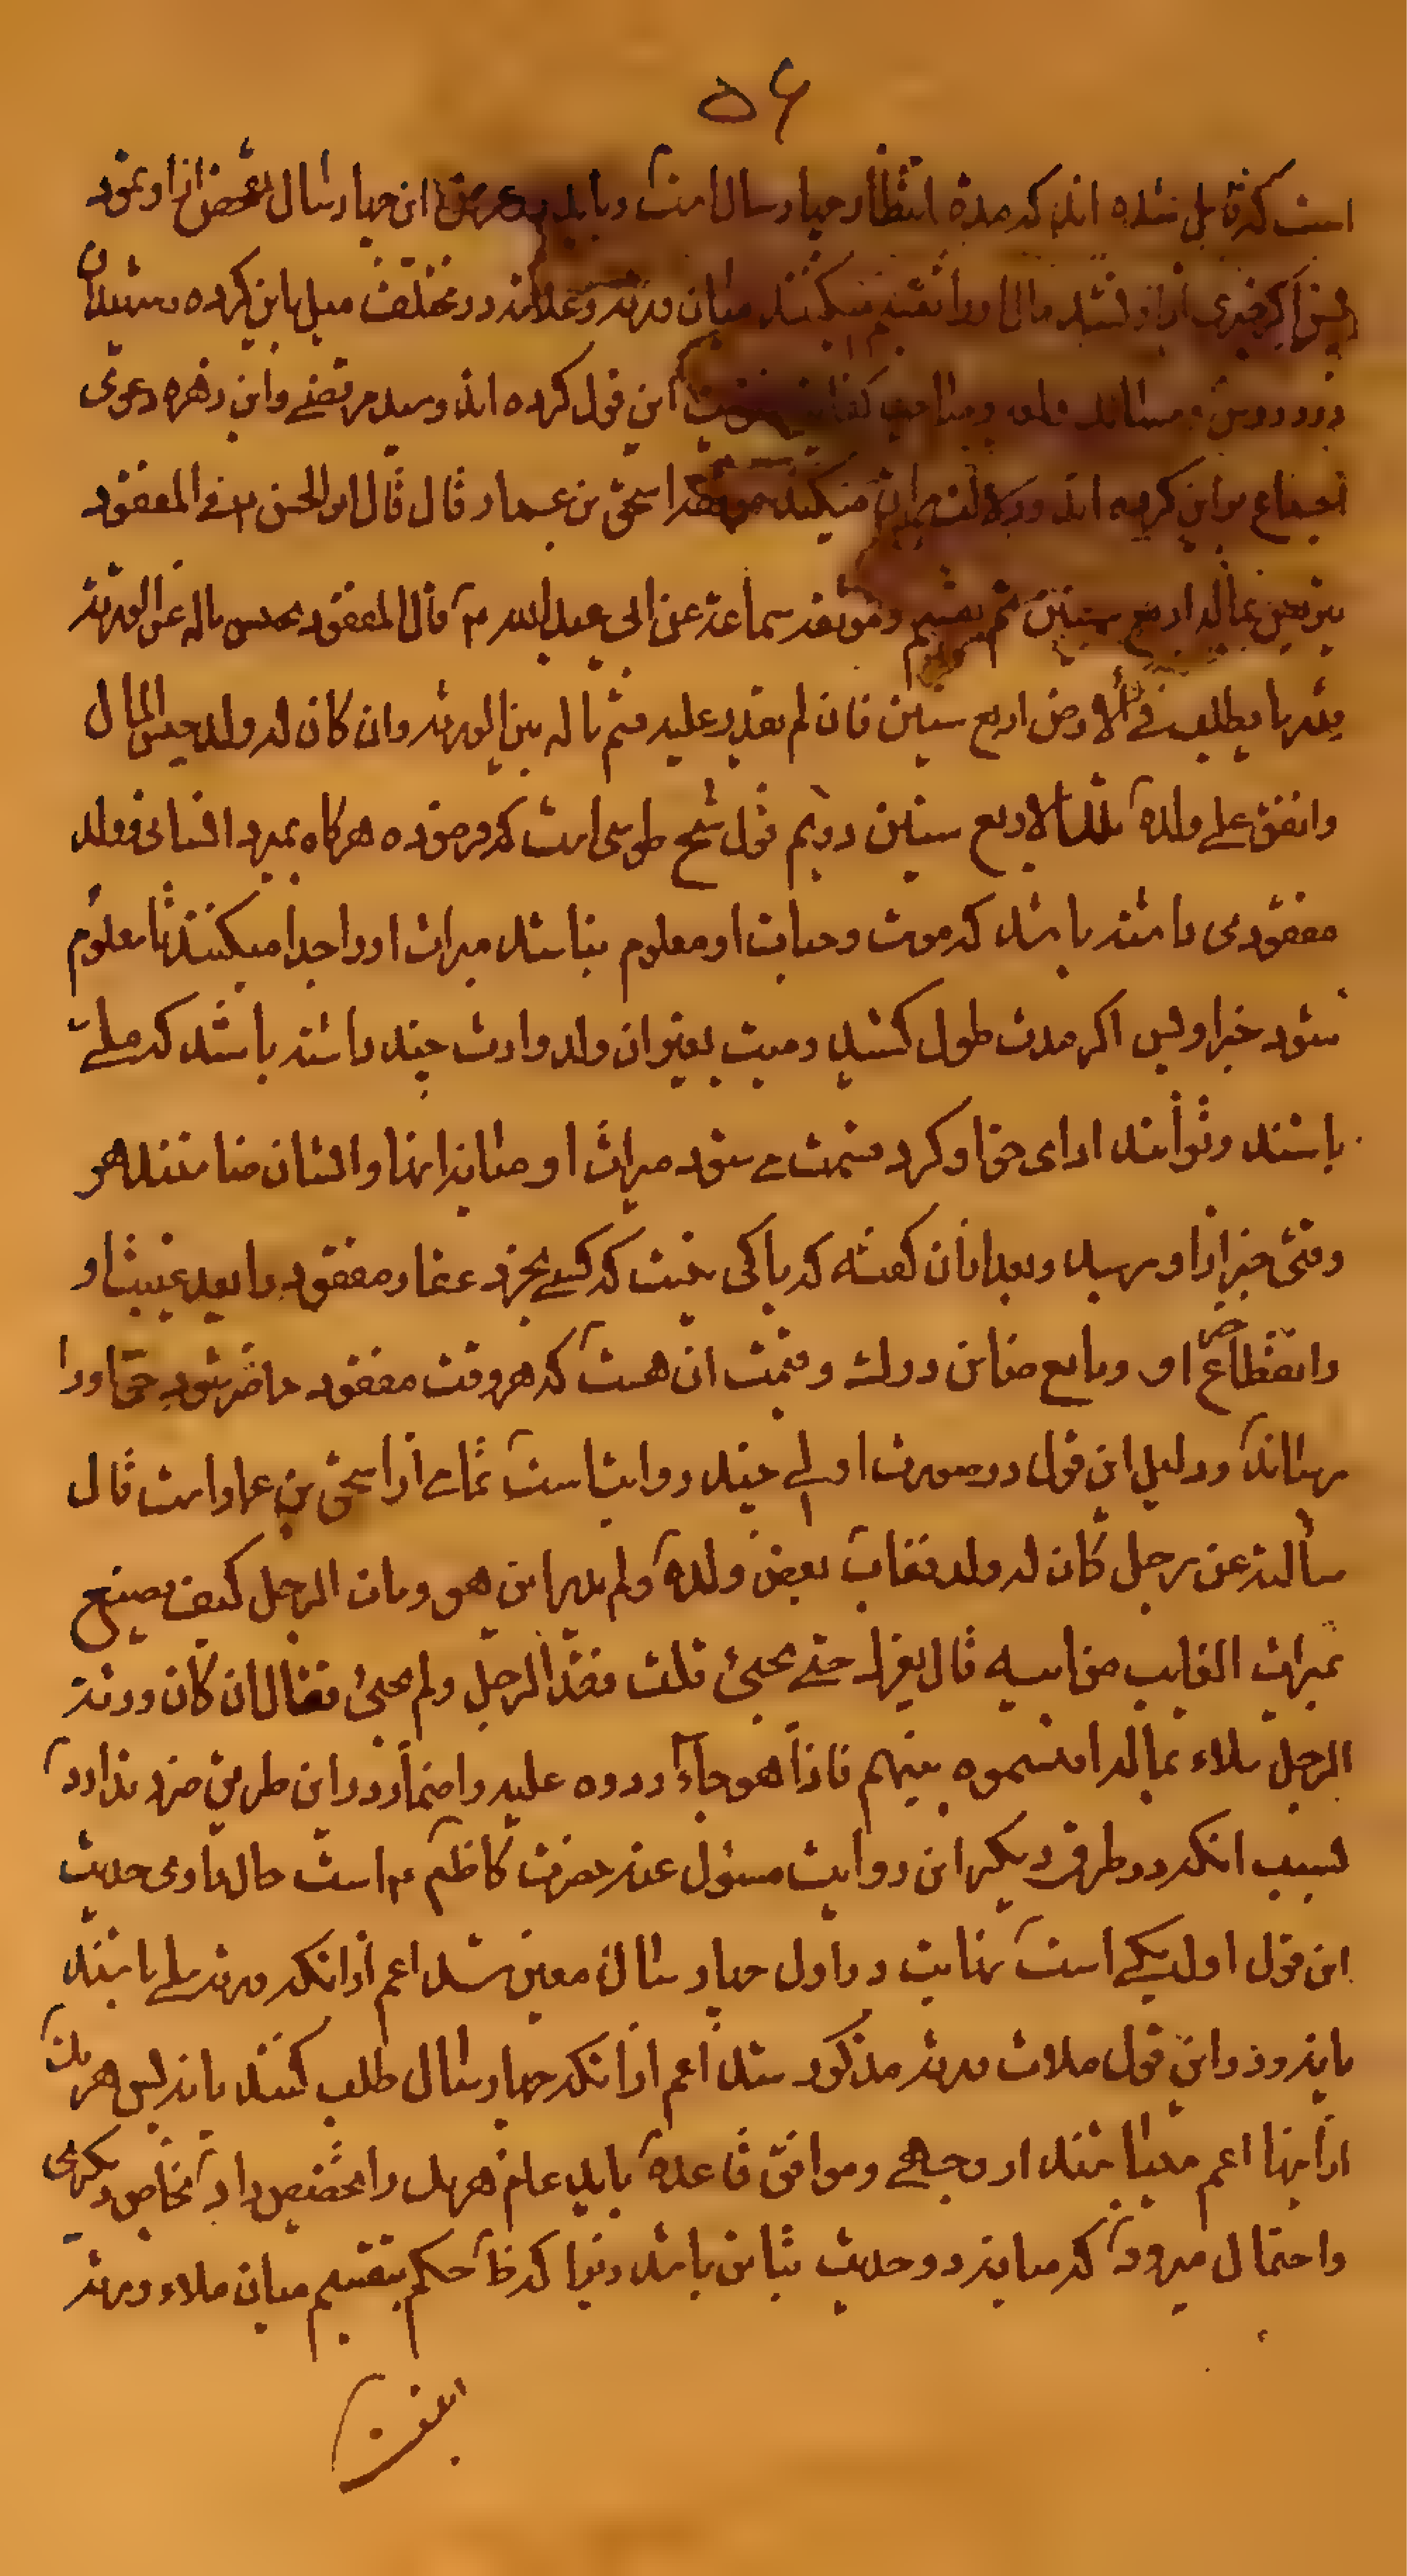 ۵۶
است که قایل شده اند که مدة انتظار چهار سال است و باید در عرض این چهار سال تفحص از او نمود
پس اگر خبری از او نشد مال او را تقسیم میکنند میان ورثه و علامه در مختلف میل باین کرده و شهیدان
در دروس و مسالك و صاحب کفایه این قول کرده اند و سید مرتضی و ابن زهره دعوی
اجماع بر این کرده اند و دلالت بر این میکند موثقه اسحق بن عمار قال قال ابو الحسن ع فی المفقود
یتربص بماله اربع سنین ثم یقسم و موثقه سماعة عن ابی عبد الله ع قال المفقود یحبس ماله علی الورثة
قدر ما یطلب فی الارض اربع سنین فان لم یقدر علیه قسم ماله بین الورثة وان کان له ولد حبس المال
وانفق علی ولده تلك الاربع سنین دویم قول شیخ طوسی است که فرموده هرکاه بمیرد انسانی و ولد
مفقودی داشته باشد که موت و حیات او معلوم نباشد میراث او را جدا میکنند تا معلوم
شود خبر او پس اکر مدت طول کشید و میت بغیر ان ولد وارث چند داشته باشد که ملی
باشند و توانند ادای حق او کرد قسمت می شود میراث او میانه انها و ایشان ضامنند هر
وقتی خبر از او رسد و بعد از ان کفته که باکی نیست که کسی بخرد عقار مفقود را بعد غیبت او
وانقطاع خبر او و بایع ضامن درك و قیمت ان هست که هر وقت مفقود حاضر شود حق او را
برساند و دلیل این قول در صورت اولی چند روایت است تمامی از اسحق بن عمار است قال
سألته عن رجل کان له ولد فغاب بعض ولده ولم یدر این هو ومات الرجل کیف یصنع
بمیراث الغایب من ابیه قال یعزل حتی یجیئ قلت فقد الرجل ولم یجیئ فقال ان کان ورثة
الرجل ملاء بماله اقتسموه بینهم فاذا هو جاء ردوه علیه واضمار در این طریق ضرر ندارد
بسبب انکه در طرق دیکر این روایت مسؤل عنه حضرت کاظم ع است حال مأوی حدیث
این قول اول یکی است نهایت در اول چهار سال معین شد اعم از انکه ورثه ملی باشند
یا نه و در این قول ملاءت ورثه مذکور شد اعم از انکه چهار سال طلب کنند یا نه پس هر یك
از اینها اعم میباشند از وجهی و موافق قاعده باید عام هر یك را تخصیص داد بخاص دیکری
واحتمال میرود که میانه دو حدیث تباین باشد زیرا که ظ حکم بتقسیم میان ملاء ورثه